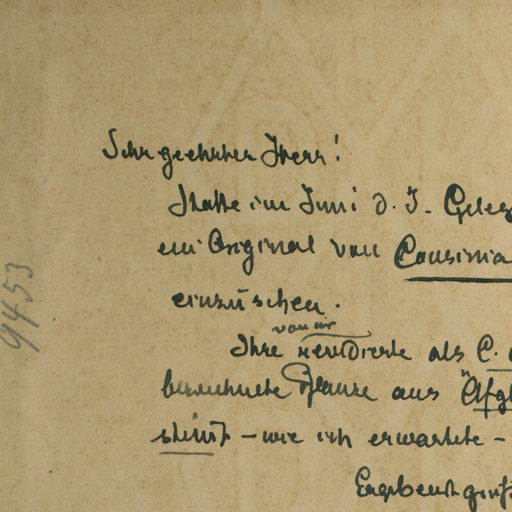 Sehr geehrter Herr!
Hatte im Juni d. J. Geleg
ein Original von Cousinia
einzusehen.
von mir
Ihre revidierte als C.
bezeichnete Pflanze aus "Afgh
stimmt - wie ich erwartete -
Ergebenst grüßt
9453